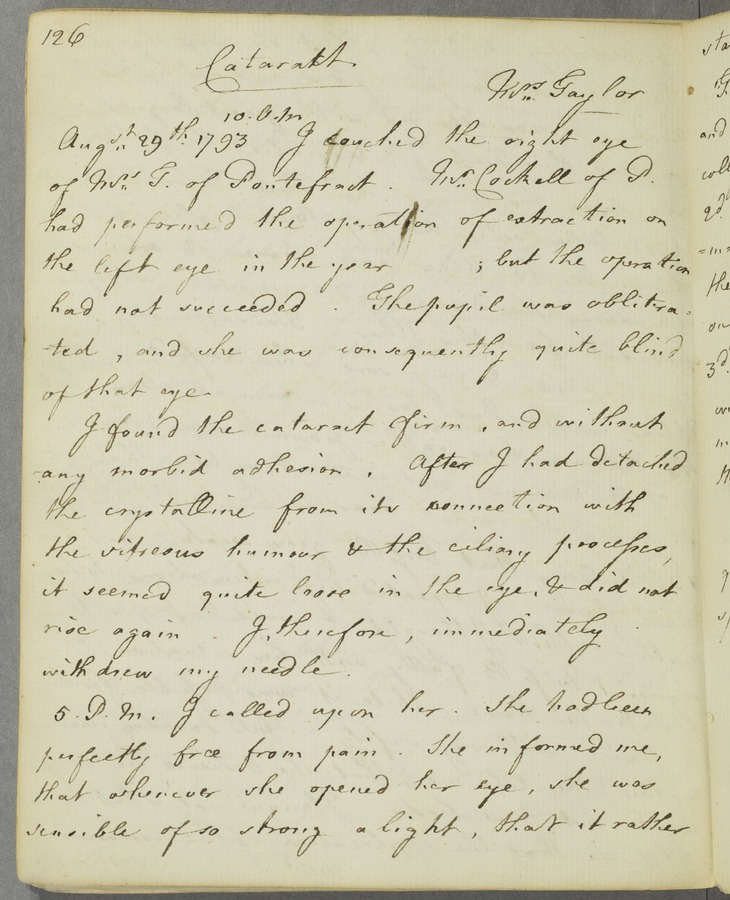 126
Catarakt.
Mrs. Taylor
10. A.m
Augst. 29th. 1793 I couched the right eye
of Mrs. T. of Pontefract. Mr. Cockell of P.
had performed the operation of extraction on
the left eye in the year ; but the operation
had not succeeded. The pupil was oblitera=
-ted, and she was consequently quite blind
of that eye.
I found the cataract firm, and without
any morbid adhesion. After I had detached
the crystalline from its connection with
the vitreous humour & the ciliary processes,
it seemed quite loose in the eye, & did not
rise again. I, therefore, immediately
withdrew my needle.
5. P.M. I called upon her. She had been
perfectly free from pain. She informed me,
that whenever she opened her eye, she was
sensible of so strong a light, that it rather